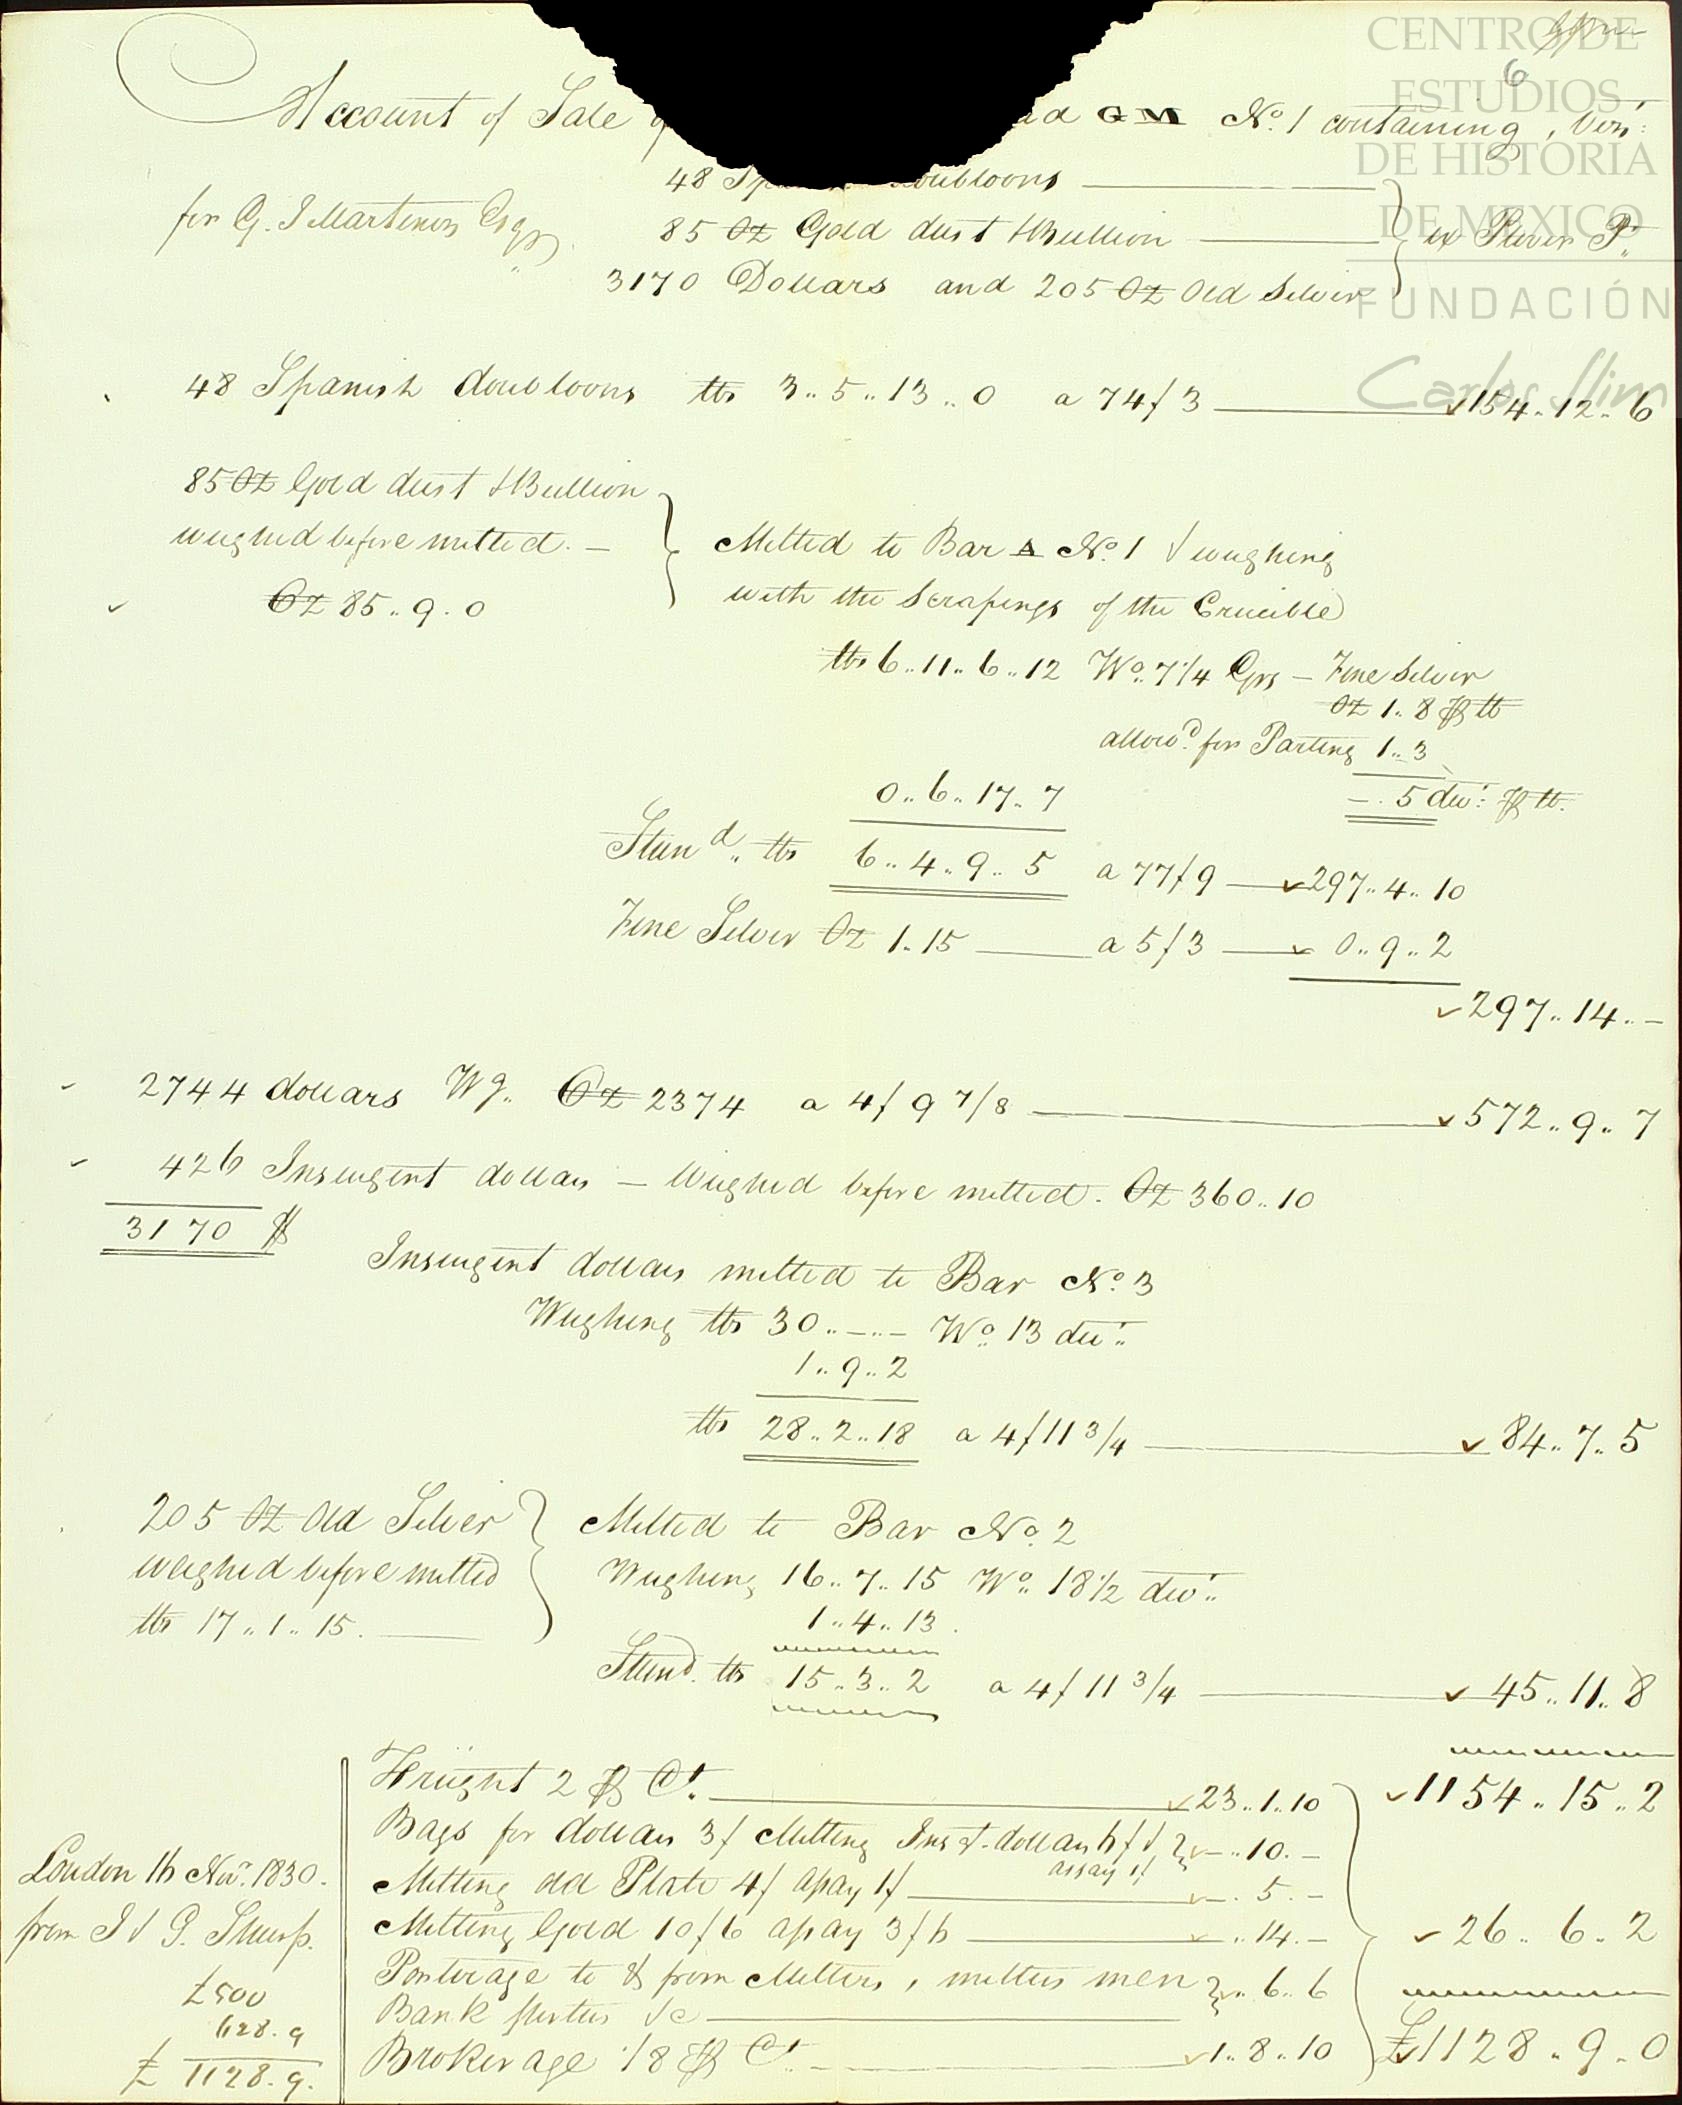 CENTRO DE
ESTUDIOS
DE HISTORIA
DE MEXICO
FUNDACIÓN
Carlos Slim
6
Account of Sale of GM No. 1 containing, Viz:
48 Doubloons
for G. J Martinez Esqr
85 Oz Gold dust & Bullion
3170 Dollars and 205 Oz Old Silver
48 Spanish doubloons lbs 3..5..13..0 a 74/3 154..12..6
85 Oz Gold dust & Bullion
weighed before melted. —
Oz 85..9.0
Melted to Bar A No. 1 & weighing
with the Scrapings of the Crucible
lbs 6..11..6..12 Wo. 7 1/4 Grs — Fine Silver
Oz 1..8 ℔ lb
allowd. for Parting 1..3
0..6..17..7 —. 5 dwt: ℔ lb.
Stand.. lbs 6..4..9..5 a 77/9 — 297..4..10
Fine Silver Oz 1.15 — a 5/3 — 0..9..2
297..14..—
2744 dollars Wg. Oz 2374 a 4/9 7/8 — 572..9..7
426 Insurgent dollars — Weighed before melted. Oz 360..10
3170 $
Insurgent dollars melted to Bar No. 3
Weighing lbs 30..—..— Wo. 13 dwt..
1..9..2
lbs 28..2..18 a 4/11 3/4 — 84..7..5
205 Oz Old Silver
weighed before melted
lbs 17..1..15.
Melted to Bar No. 2
Weighing 16..7..15 Wo. 18 1/2 dwt..
1..4..13
Stand. lbs 15..3..2 a 4/11 3/4 — 45..11..8
1154..15..2
Freight 2 ℔ Ct. — 23..1..10
Bags for dollars 3/ Melting Inst. dollars 6/ assay 1/ —..10.—
Melting old Plate 4/ assay 1/ —.5.—
Melting Gold 10/6 assay 3/6 — ..14.—
26..6..2
Porterage to & from Melters, melters men
Bank porters &c — ..6..6
Brokerage 1/8 ℔ Ct. — 1..8..10
£1128..9..0
London 16 Nov. 1830.
from J & G.
£500
628.9
£ 1128.9.